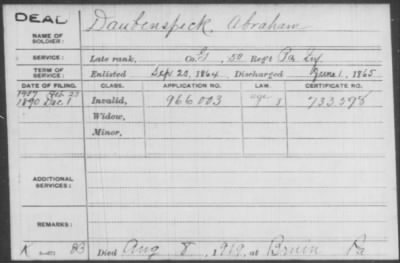 DEAD
NAME OF SOLDIER: Daubenspeck, Abraham
SERVICE: Late rank, Co. G, 5H Reg't Pa Inf
TERM OF SERVICE: Enlisted Sep 20, 1864 Discharged June 1, 1865
DATE OF FILING. CLASS. APPLICATION NO. LAW. CERTIFICATE NO.
1907 Feb 23
1890 Dec 1 Invalid, 966.003 age 733598
Widow,
Minor,
ADDITIONAL SERVICES:
REMARKS:
K 83 Died Aug 8, 1919, at Bruin Pa